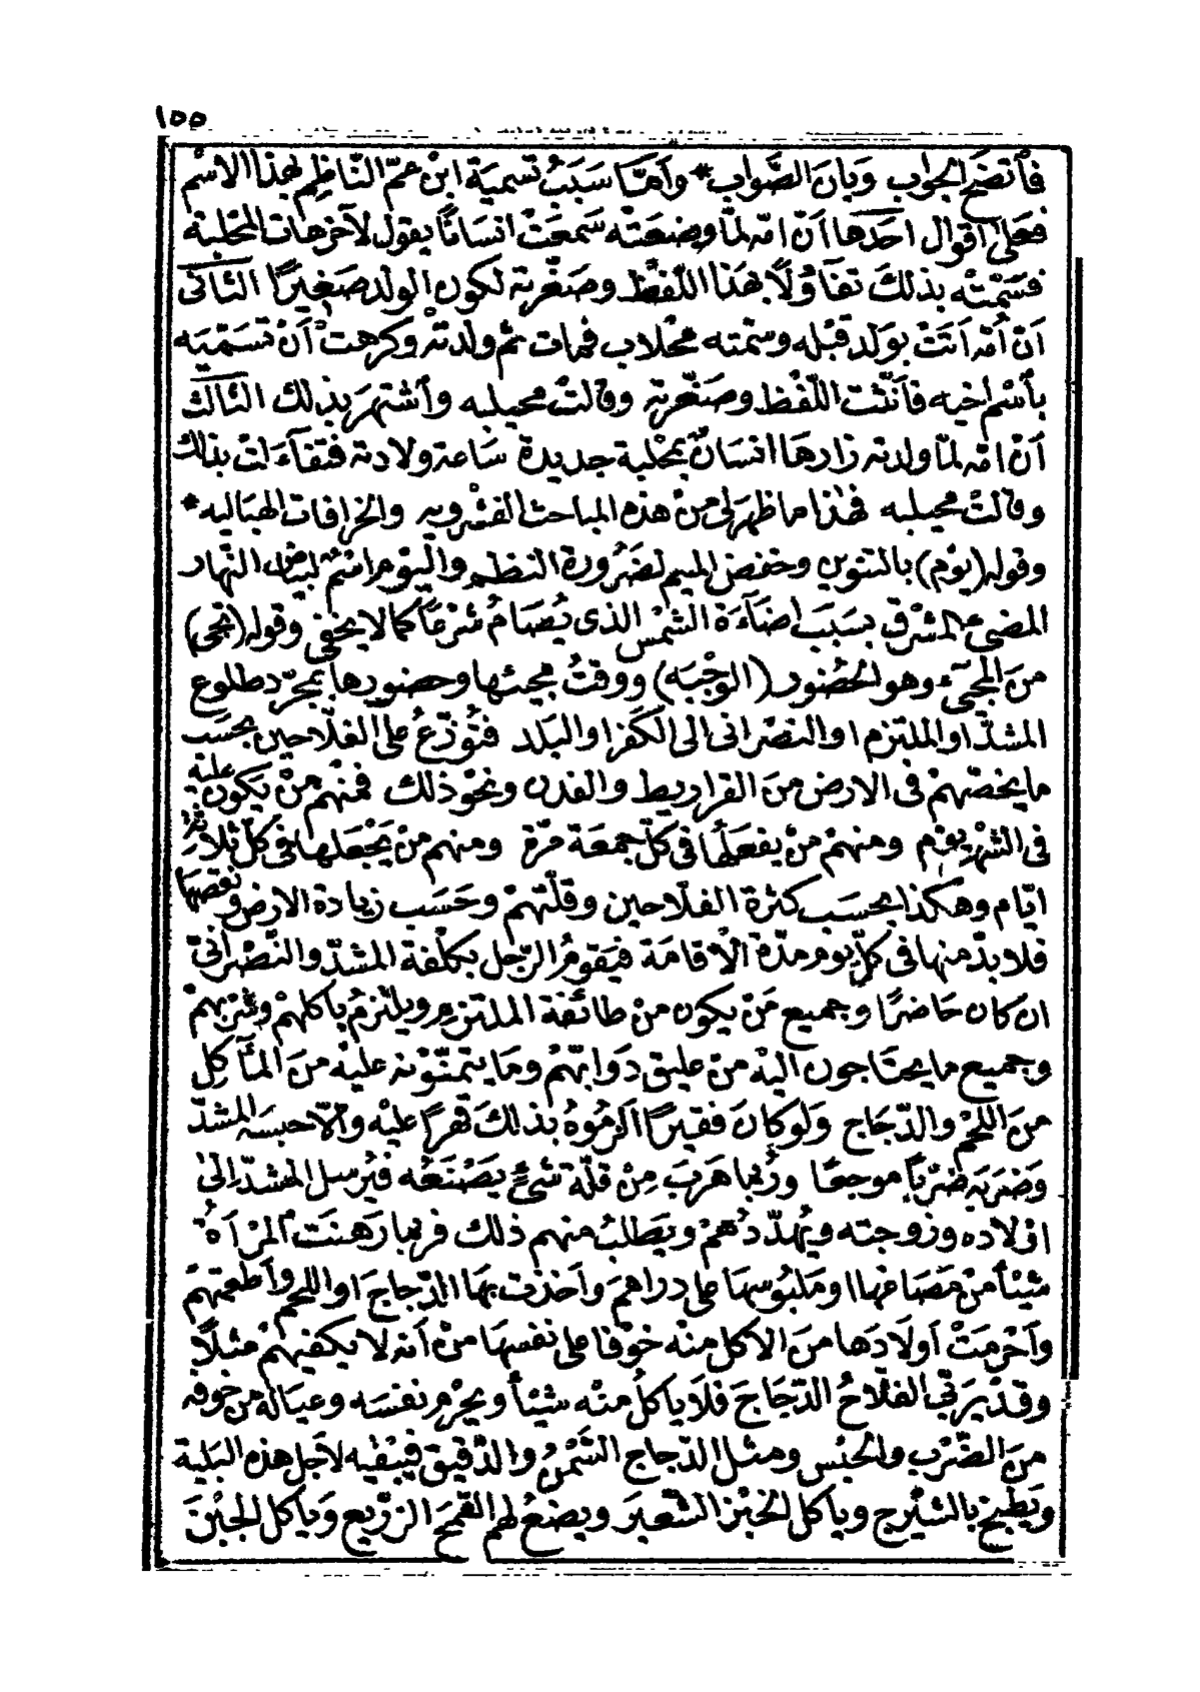 ١٥٥
فأتضح الجواب وبان الصّواب * وأمّا سَبَبُ تسمية ابن عمّ النّاظِم بهذا الاسْم
فعَلى اقوال احَدها أنّ امّه لمّا وضعَته سَمعَتْ انسانًا يقول لآخر هات المحْلبة
فسَمّتْه بذلكَ تفاؤلًا بهَذا اللّفظ وصَغّرته لكون الولد صَغيرًا الثّانى
أنّ أمّه اَتتْ بوَلد قبْله وسمّته محْلاب فمات ثم ولدتْه وكرهتْ أنْ تسَمّيَه
بأسْم اخيه فأنّثت اللّفظ وصَغّرته وقالتْ محيلبه وأشتهر بذلك الثّالث
أنّ امّه لمّا ولدته زارهَا انسَانٌ بمحْلبة جديدة سَاعة ولادته فتفآءلت بذلك
وقالتْ محيلبه فهٰذا ما ظهر لى منْ هذه المباحث الفشْرويه والخرافات الهبَاليه *
وقوله (يَوْمٍ) بالتنوين وخفض الميم لضَرُورة النظم واليَوْم اسْم لبيَاض النّهار
المضئ المشْرق بسَبَب اضَآءَة الشمْس الذى يُصَامُ شرْعًا كما لا يخفى وقوله (تجى)
منَ المجئ وهو الحُضُور (الوَجْبَه) ووقتُ مجيئها وحضورها بمجرّد طلوع
المشدّ او الملتزم او النصْرانى الى الكَفر او البَلد فتُوَزّعُ على الفلّاحين بحَسَب
ما يخصّهمْ فى الارض منَ القراريط والفدن ونحْو ذلك فمنْهم منْ يَكون عليه
فى الشهْر يوْم ومنهمْ منْ يفعَلهَا فى كلّ جمعَة مَرّة ومنهم منْ يَجْعَلها فى كلّ ثلاثة
ايّام وهكذا بحسَب كثرة الفلّاحين وقلّتهمْ وحَسَب زيادة الارض ونقصها
فلا بدّ منها فى كلّ يوم مدّة الْاقامَة فيَقومُ الرّجل بكلْفة المشدّ والنّصْرانىّ
ان كان حَاضرًا وجميع مَنْ يكون منْ طائفة الملتزم ويلتزمُ بأكلهمْ وشربهمْ
وجميع ما يحتاجون اليْه منْ عليق دَوابّهمْ ومَا يتمنّوْنه عليْه منَ المآكِل
منَ اللحْم والدّجاج وَلو كانَ فقيرًا الزمُوهُ بذلكَ قهرًا عليْه والّا حبسَه المشدّ
وضَربَه ضرْبًا موجعًا ورُبما هَربَ مِنْ قلّة شئٍ يصْنَعُه فيُرسل المشدّ إلى
اوْلاده وزوجته ويُهدّدُهمْ ويَطلبُ منهم ذلك فربما رَهنَت المرْأةُ
شيئًا منْ مَصَاغها او مَلبُوسهَا على دراهمَ وأخذتْ بهَا الدّجاجَ او اللحم وأطعمتهمْ
وأحْرمَتْ أولَادَها منَ الاكل منْه خوْفا على نفسهَا منْ أنه لا يكفيهمْ مثلًا
وقدْ يَربّى الفلّاحُ الدّجَاجَ فلَا يأكلُ منْه شيْئًا ويحْرم نفسَه وعيَاله من خوفه
منَ الضّرْب والحبْس ومثل الدّجاج السّمْنُ والدّقيق فيُبْقيه لأجل هذه البَلية
ويَطبخ بالشيْرج ويأكل الخبْز الشّعيرَ ويصْنعُ لهم القمْحَ الزرْيع ويَأكل الجبْنَ